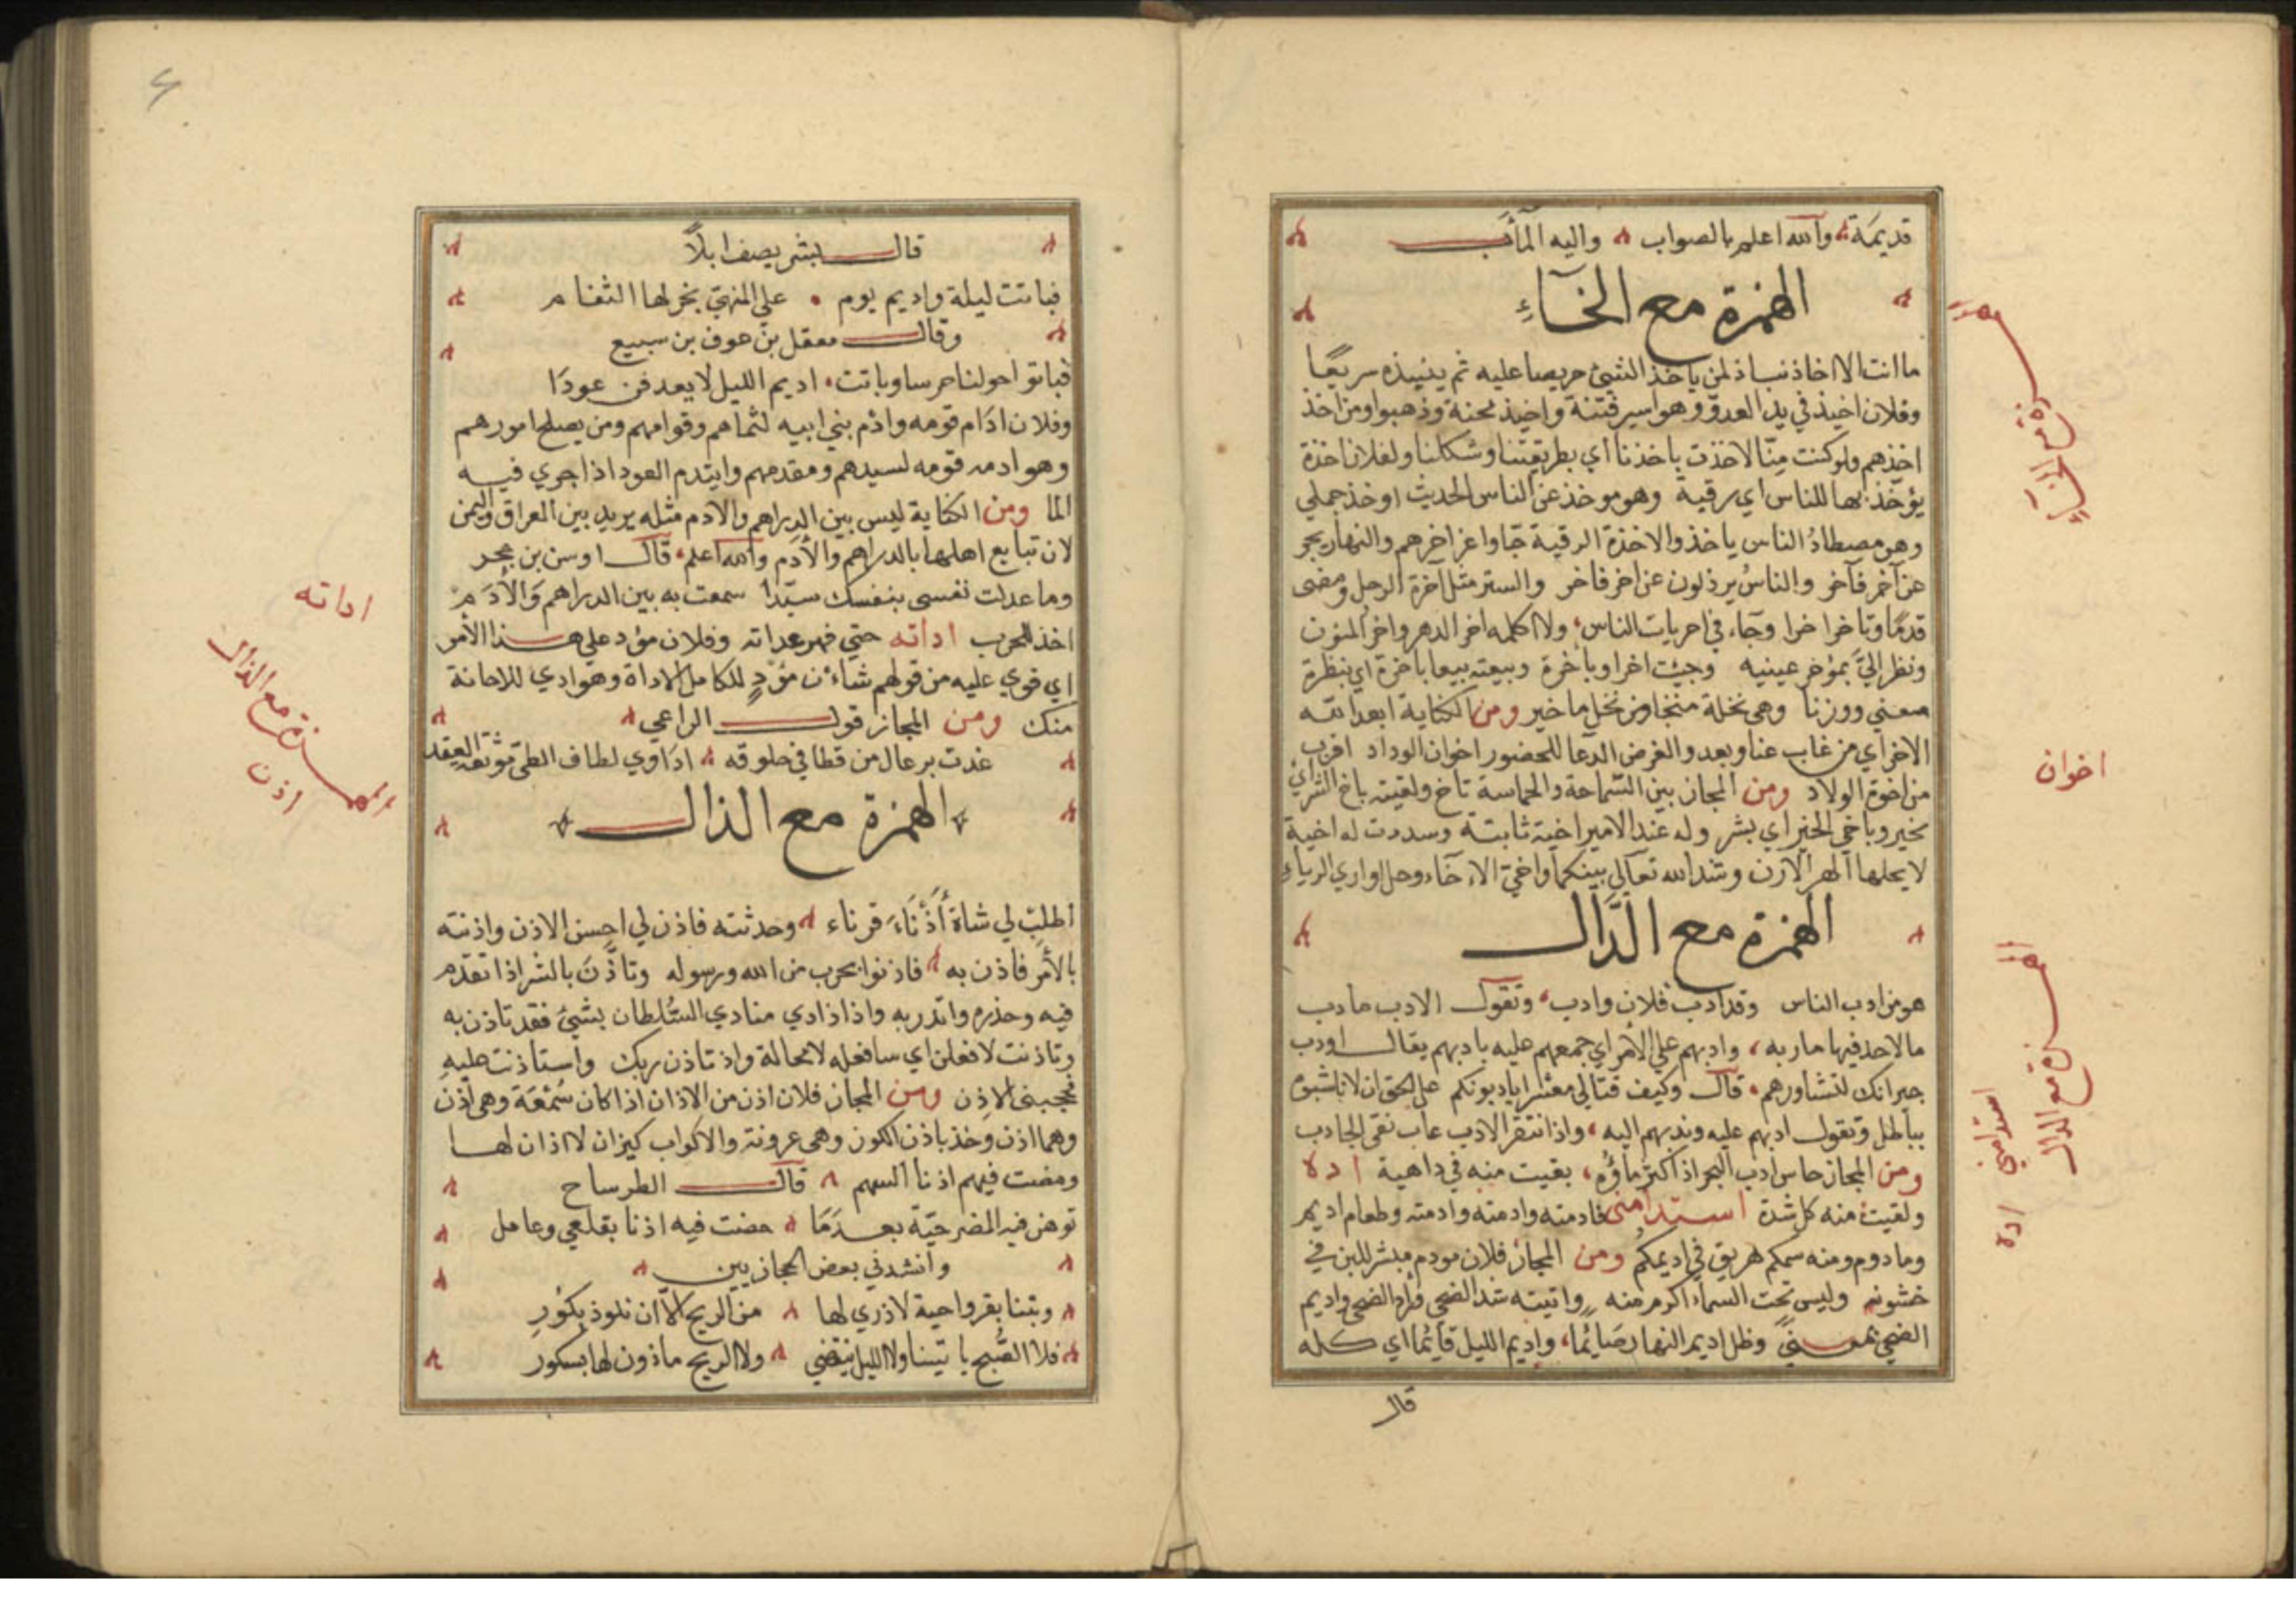 قديمَة والله اعلم بالصواب واليه المأب
الهمزة مع الخآءِ
ما انت الا اخاذ نباذ لمن ياخذ الشئ حريصا عليه ثم ينبذه سريعًا
وفلان اخيذ في يد العدوّ وهو اسير فتنة واخيذ محنة وذهبوا ومن اخذ
اخذهم ولو كنت مِنّا لاخذت باخذنا اي بطريقتنا وشكلنا ولفلان اخذة
يؤخّذ بها للناس اي رقية وهو موخذ عن الناس الحديث اوخذ جملي
وهو مصطادُ الناس ياخذ والاخذة الرقية جَاوا عن اخرهم والنهار يجر
عن آخر فآخر والناسُ يرذلون عن اخر فاخر والستر مثل آخرة الرحل ومضى
قدمًا وتاخر اخرا وجَاء في اخريات الناس ولا اكلمه اخر الدهر واخر المنون
ونظر اليَّ بمؤخر عينيه وجيت اخرا وباخرة وبيعته بيعا باخرة اي بنظرة
معني ووزنا وهي نخلة منخار من نخل ما خير ومن الكناية ابعد الله
الاخر اي من غاب عنا وبعد والغرض الدعا للحضور اخوان الوداد اقرب
من اخوة الولاد ومن المجاز بين السماحة والحماسة تاخ ولقيته باخ الشر اي
بخير وباخي الخير اي بشر وله عند الامير اخية ثابتة وسددت له اخية
لا يحلها المهر الارن وشد الله تعالي بينكما واخي الاخَاء وحل اواري الرياء
الهمزة مع الدَّال
هو من ادب الناس وقد ادب فلان وادب وتقول الادب مادب
ما لاحد فيها ماربه وادبهم علي الأمر اي جمعهم عليه يادبهم يقال اودب
جيرانك لتشاورهم قال وكيف قتالي معشرا يادبونكم على الحق ان لا تاشبوه
بباطل وتقول ادبهم عليه وندبهم اليه واذا انتقر الادب عاب نقى الجادب
ومن المجاز جاس ادب البحر اذ اكثر ماؤه بقيت منه في داهية اده
ولقيت منه كل شدة استدامنى فادمته وادمته وادمته وطعام اديم
ومادوم ومنه سمكم هريق في اديمكم ومن المجاز فلان مودم مبشر للين في
خشونه وليس تحت السماء اكرم منه واتيته شد الضحي وراد الضحى واديم
الضحي بمعنيً وظل اديم النهار صَائما واديم الليل قائما اي كله
قال
اخوان
الهمزة مع الدال
استدامنى
اده
قال بشر يصف ابلاً
فباتت ليلة واديم يوم علي المنهي يخر لها الثغام
وقال معقل بن عوف بن سبيع
فباتوا حولنا حرسا وباتت اديم الليل لا يعدفن عودَا
وفلان ادَام قومه وادم بني ابيه لثماهم وقوامهم ومن يصلح امورهم
وهو ادمه قومه لسيدهم ومقدمهم وايتدم العود اذا جري فيه
الما ومن الكناية ليس بين الدراهم والادم مثله يريد بين العراق واليمن
لان تبايع اهلها بالدراهم والأدَم والله اعلم قال اوس بن حجر
وما عدلت نفسي بنفسك سيّدا سمعت به بين الدراهم وَالأدَم
اخذ للحرب اداته حتي قهر عداته وفلان مؤد علي هذا الأمر
اي قوي عليه من قولهم شاءن مؤدٍ للكامل الاداة وهو ادي للاحانة
منك ومن المجاز قول الراعي
غدت برعال من قطا في حلوقه ادَاوي لطاف الطي موثقه العقد
الهمزة مع الذال
اطلب لي شاة أَذْنَاءَ قرناء وحدثته فاذن لي احسن الاذن واذنته
بالأمر فاذن به فاذنوا بحرب من الله ورسوله وتاذَّنَ بالشر اذا تقدم
فيه وحذره وانذر به واذا ذادي منادي السُّلطان بشئ فقد تاذن به
وتاذنت لافعلن اي سافعله لا محالة واذ تاذن ربك واستاذنت عليهِ
فحجبنى الاذِن ومن المجاز فلان اذن من الاذان اذا كان سُمْعَة وهي اذن
وهما اذن وخذ باذن الكوز وهي عروته والاكواب كيزان لا اذان لها
ومضت فيهم اذنا السهم قال الطرساح
توهن فيه المضرحيّة بعدمَا مضت فيه اذنا بقلعي وعامل
وانشدني بعض الحجازيين
وبتنا بقرواحية لا ذري لها من الريح الا ان نلوذ بكُورِ
فلا الصُّبح ياتينا ولا الليل ينقضي ولا الريح ماذون لها بسكور
اداته
الهمزة مع الذال
اذن